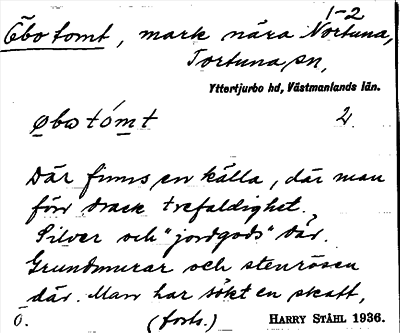 1-2
Öbo tomt, mark nära Nortuna,
Tortuna sn,
Yttertjurbo hd, Västmanlands län.
øbo tómt 2.
Där finns en källa, där man
förr drack trefaldighet.
Silver och "jordgods" där.
Grundmurar och stenrösen
där. Man har sökt en skatt,
O. (forts.) HARRY STÅHL 1936.